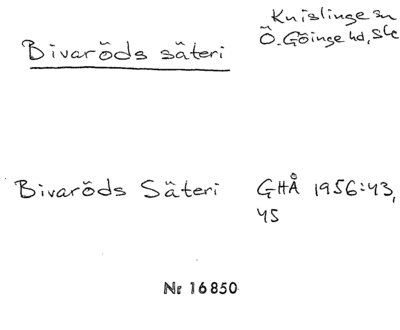 Bivaröds säteri
Knislinge sn
Ö. Göinge hd, Skå
Bivaröds Säteri
GHÅ 1956:43,
45
Nr 16850